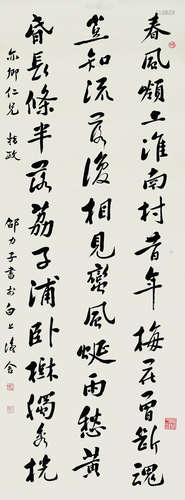 春風嶺上淮南村昔年梅花曾斷魂
豈知流落復相見蠻風蜒雨愁黃
昏長條半落荔子浦臥樹獨秀桄
亦卿仁兄 指政 邵力子書於白上